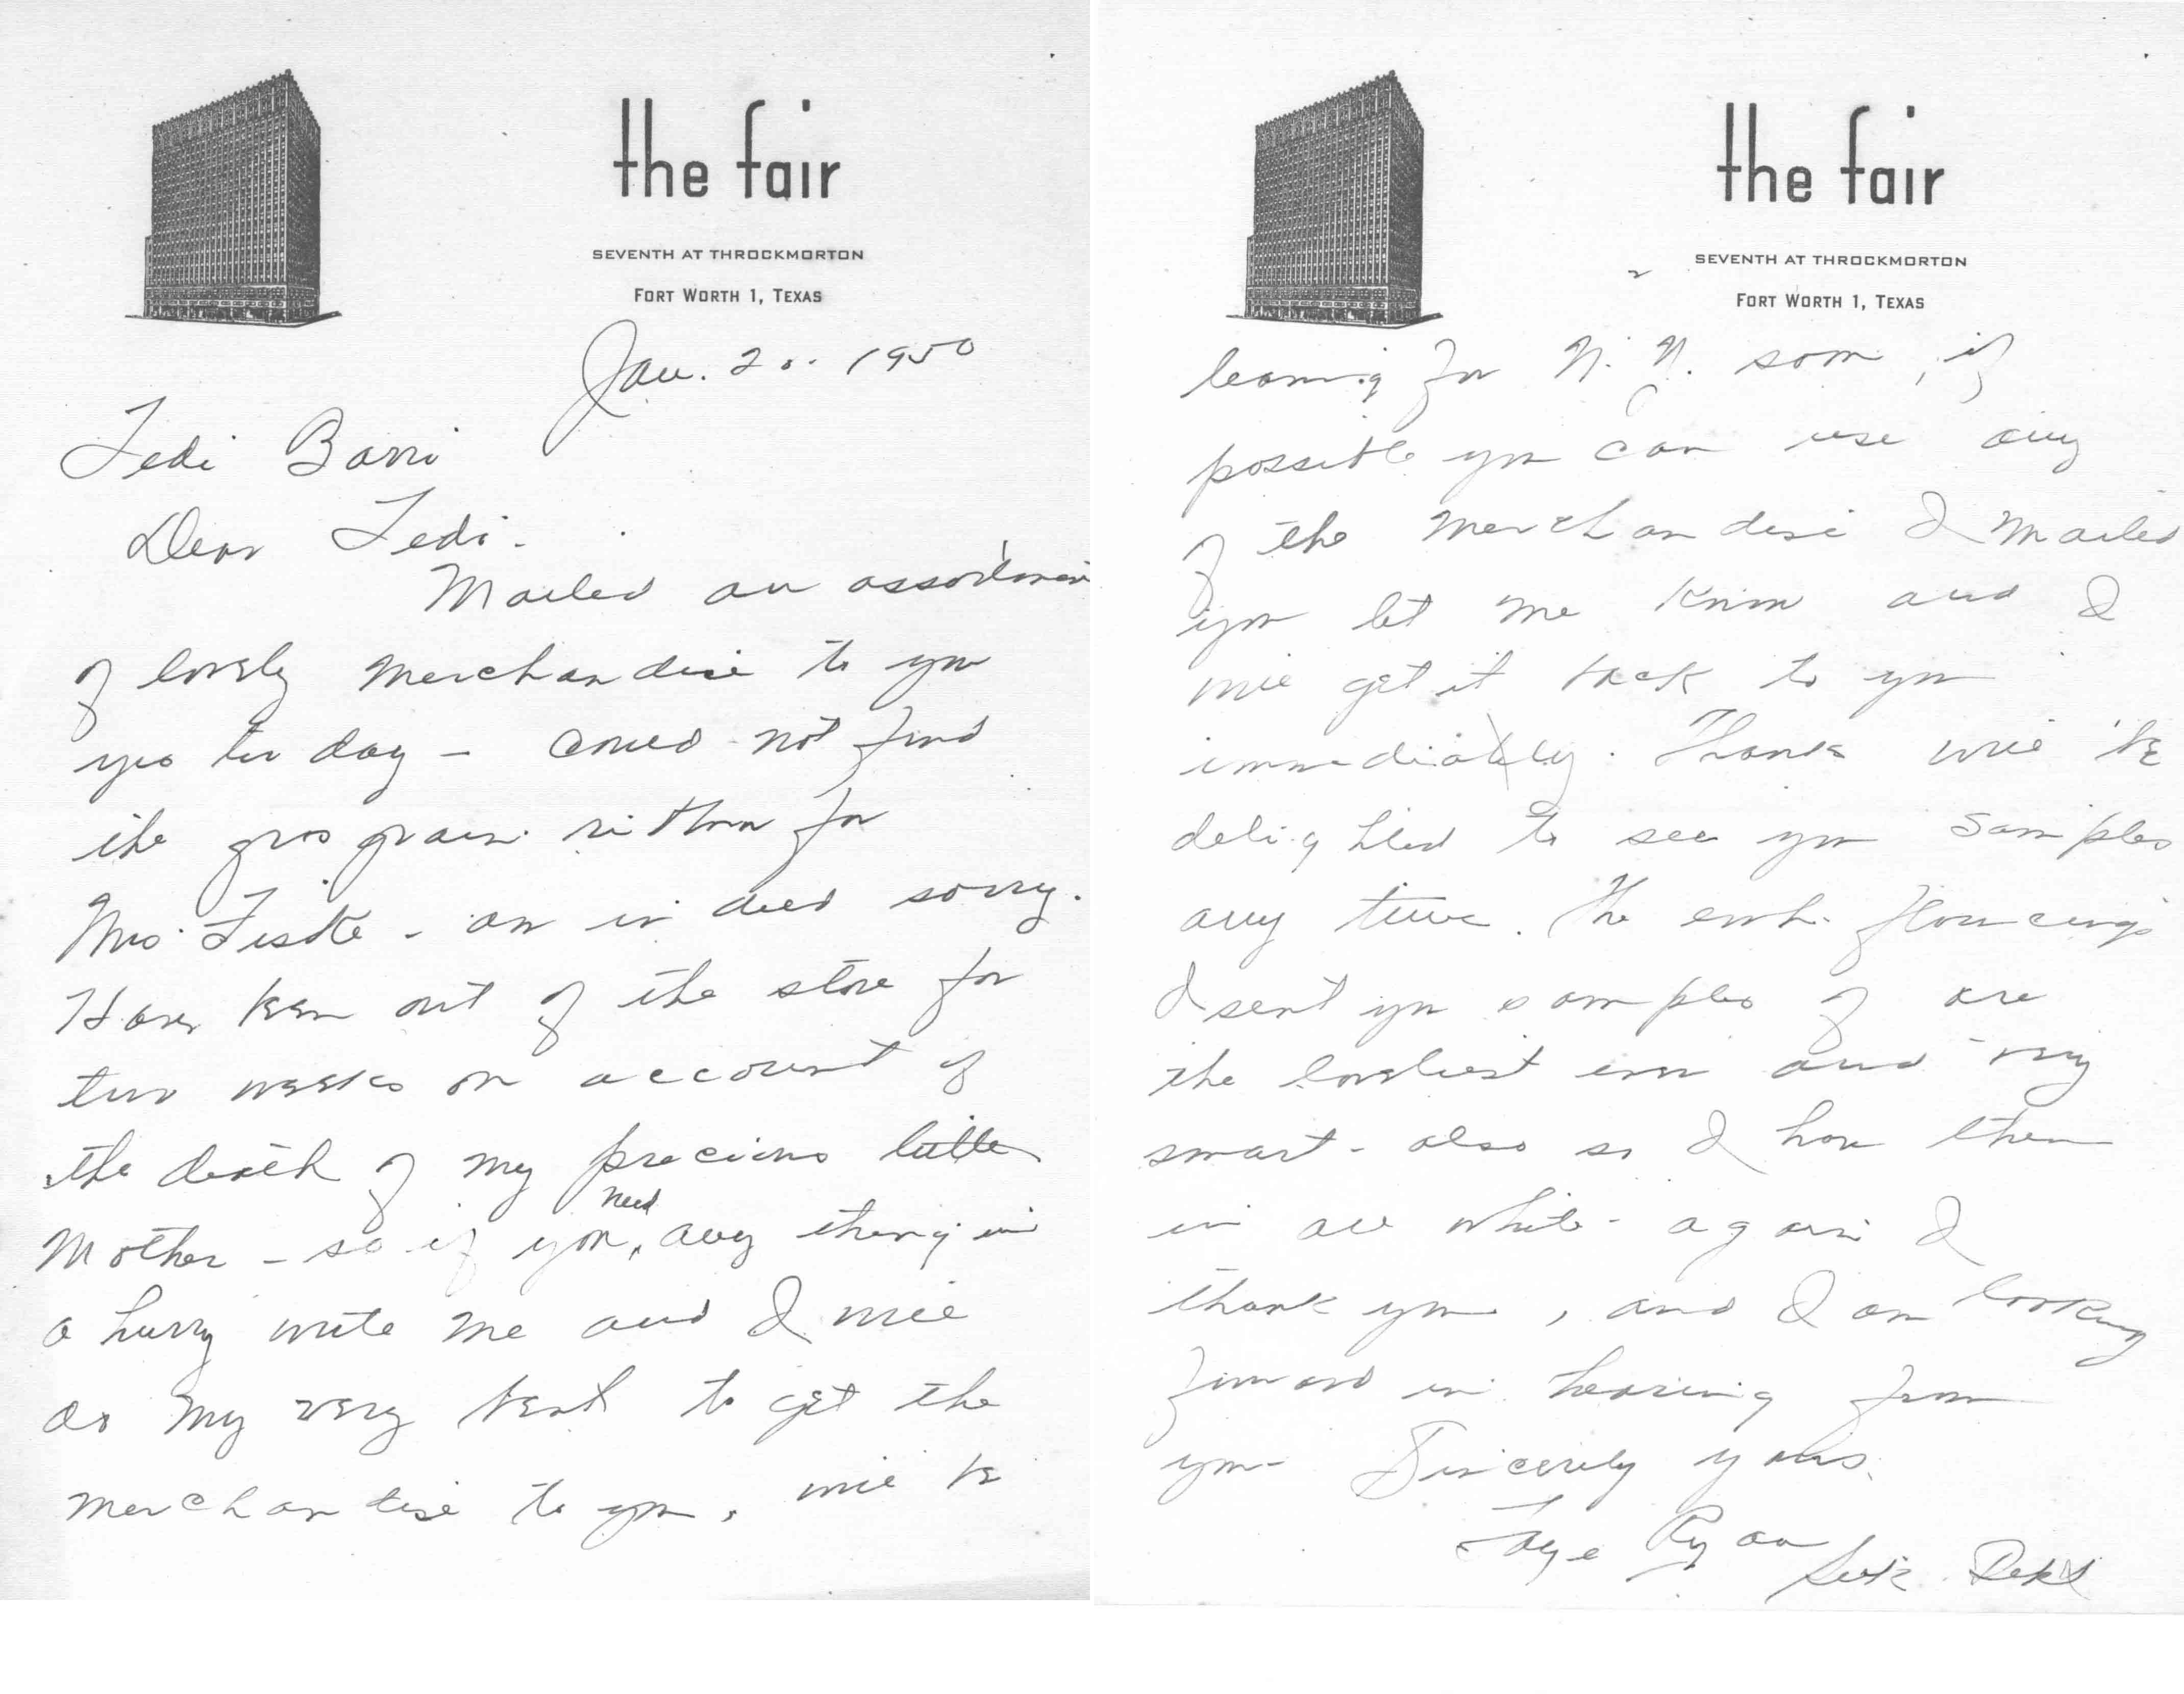 the fair
SEVENTH AT THROCKMORTON
FORT WORTH 1, TEXAS
Jan. 20. 1950
Tedi Barri
Dear Tedi.
Mailed an assortment
of lovely merchandise to you
yesterday - could not find
the grosgrain ribbon for
Mrs. - am indeed sorry.
Have been out of the store for
two weeks on account of
the death of my precious little
Mother - so if you need any thing in
a hurry write me and I will
do my very best to get the
merchandise to you. will be
the fair
SEVENTH AT THROCKMORTON
FORT WORTH 1, TEXAS
2
leaving for N.Y. soon, if
possible you can use any
of the merchandise I mailed
you let me know and I
will get it back to you
immediately. Thanks will be
delighted to see you samples
any time. The emb. flouncings
I sent you samples of are
the loveliest ever and very
smart - also so I have them
in all white - again I
thank you, and I am looking
forward in hearing from
you - Sincerely yours.
Faye Ryan Silk Dept